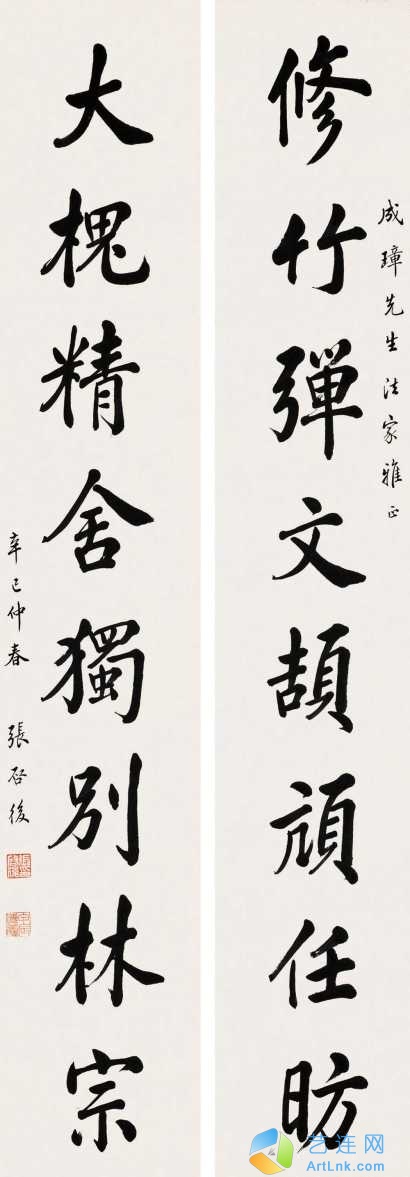 成璋先生法家雅正
修竹彈文頡頏任昉
大槐精舍獨別林宗
辛巳仲春 張啓後
艺连网
ArtLnk.com